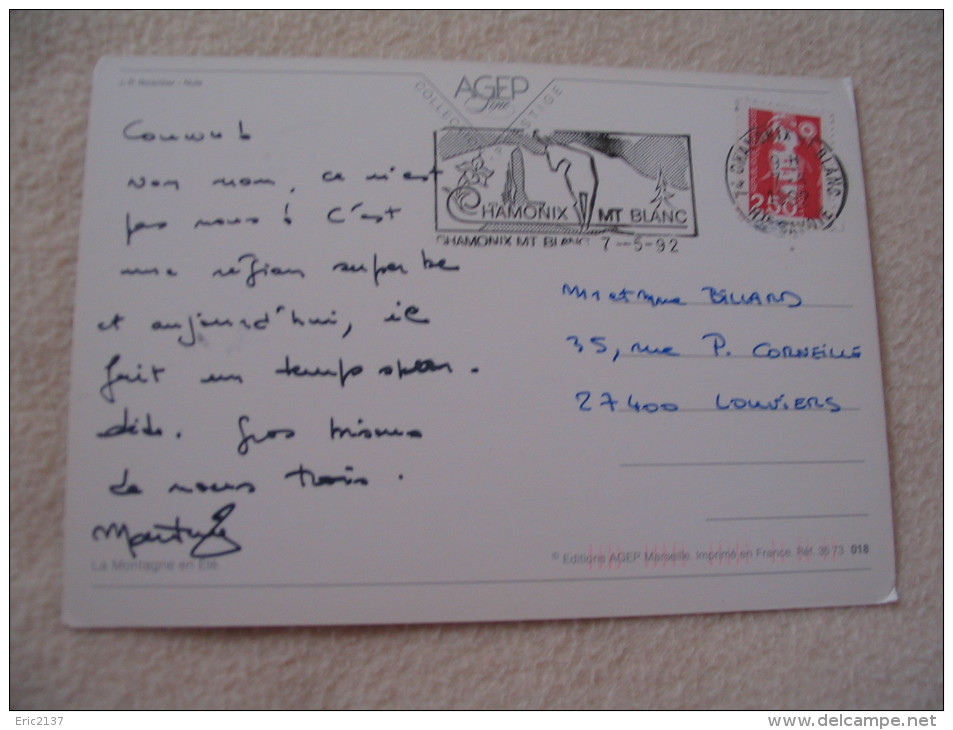 AGEP
COLLECTION PRESTIGE
Coucou !
non non, ce n'est
pas nous ! C'est
une région superbe
et aujourd'hui, il
fait un temps splen-
dide. Gros bisous
de nous trois.
La Montagne en Été
CHAMONIX MT BLANC
CHAMONIX MT BLANC 7-5-92
2,50
Mr et Mme BILLARD
35, rue P. CORNEILLE
27400 LOUVIERS
© Editions AGEP Marseille. Imprimé en France. Réf. 3673 018
Eric2137
http://www.delcampe.net